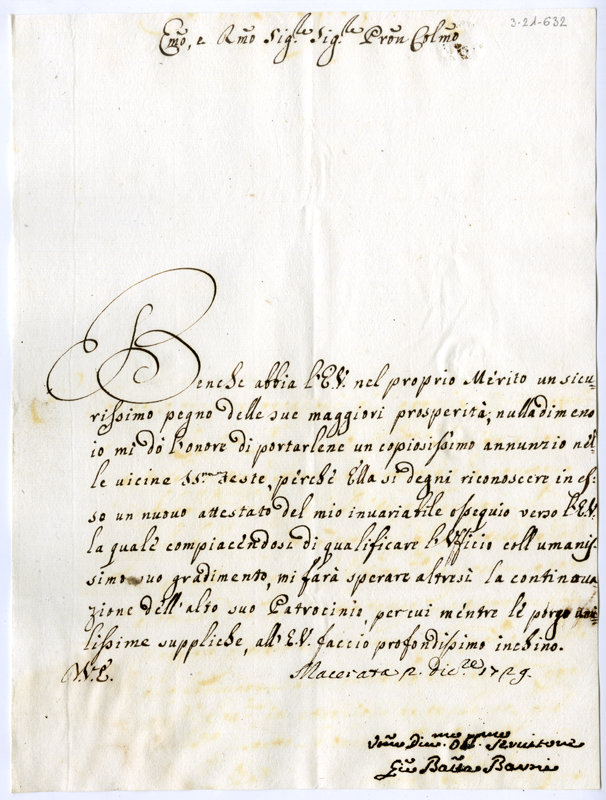 3-21-632
Emõ, e Rmõ Sig.re Sig.re Prõn Colmõ
Benche abbia l'E.V. nel proprio Mérito un sicu-
rissimo pegno delle sue maggiori prosperità; nulladimeno
io mi dò l'onore di portarlene un copiosissimo annunzio nel-
le vicine SS.me Feste, perchè Ella si degni riconoscere in es-
so un nuovo attestato del mio invariabile ossequio verso l'E.V.
la quale compiacendosi di qualificare l'Ufficio coll'umanis-
simo suo gradimento, mi farà sperare altresì la continua-
zione dell'alto suo Patrocinio, per cui mentre le porgo umi-
lissime suppliche, all'E.V. faccio profondissimo inchino.
V.E. Macerata 2. dic.re 1729.
Vmõ Div.mo Obl.mo Servitore
Giõ Batta